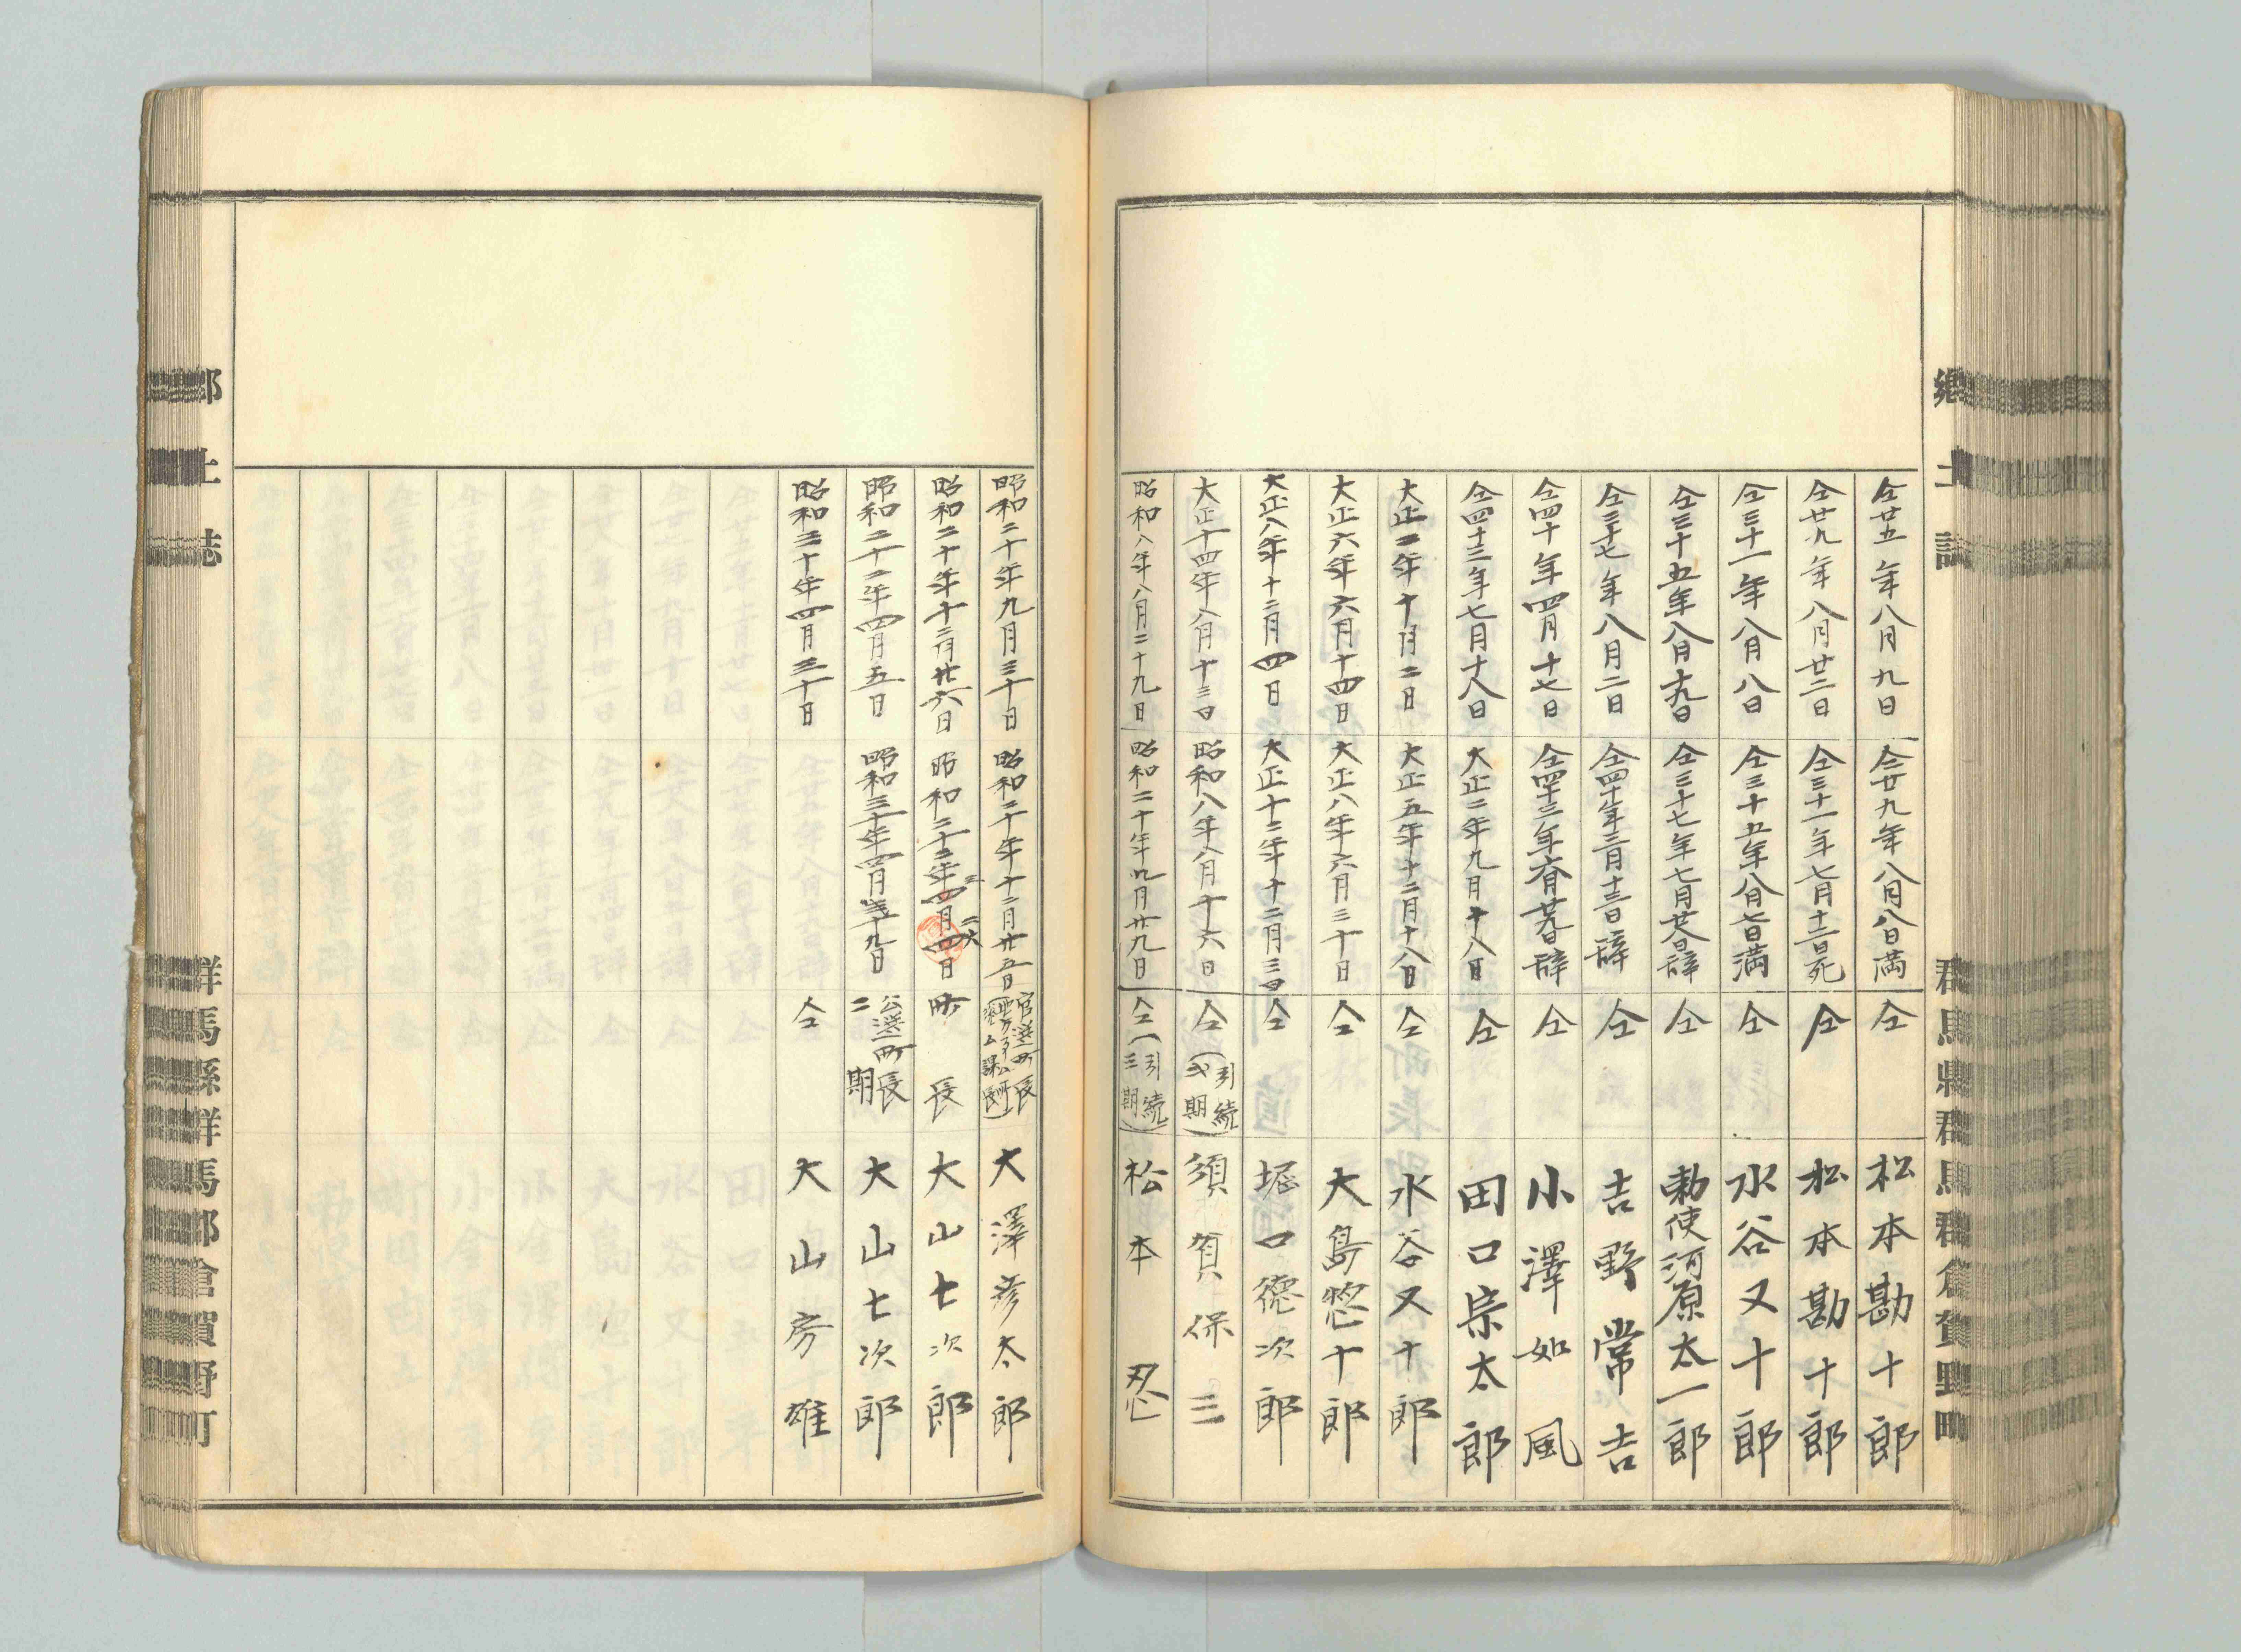 鄕土誌
群馬縣群馬郡倉賀野町
仝廿五年八月九日 仝廿九年八月八日満 仝 松本勘十郎
仝廿九年八月廿二日 仝三十一年七月十二日死 仝 松本勘十郎
仝三十一年八月八日 仝三十五年八月七日満 仝 水谷又十郎
仝三十五年八月十九日 仝三十七年七月廿八日辞 仝 勅使河原太一郎
仝三十七年八月二日 仝四十年三月十三日辞 仝 吉野常吉
仝四十年四月十七日 仝四十三年 辞 仝 小澤如風
仝四十三年七月十八日 大正二年九月十八日 仝 田口宗太郎
大正二年十月二日 大正五年十二月十八日 仝 水谷又十郎
大正六年六月十四日 大正八年六月三十日 仝 大島惣十郎
大正八年十二月四日 大正十二年十二月三日 仝 堀口德次郎
大正十四年八月十三日 昭和八年八月十六日 仝(引続弐期) 須賀保三
昭和八年八月二十九日 昭和二十年九月廿九日 仝(引続三期) 松本忍
昭和二十年九月三十日 昭和二十年十二月廿五日 官選町長 大澤彦太郎
昭和二十年十二月廿六日 昭和二十二年四月四日 二 二六 町長 大山七次郎
昭和二十二年四月五日 昭和三十年四月二十九日 公選町長二期 大山七次郎
昭和三十年四月三十日 仝 大山房雄
鄕土誌
群馬縣群馬郡倉賀野町